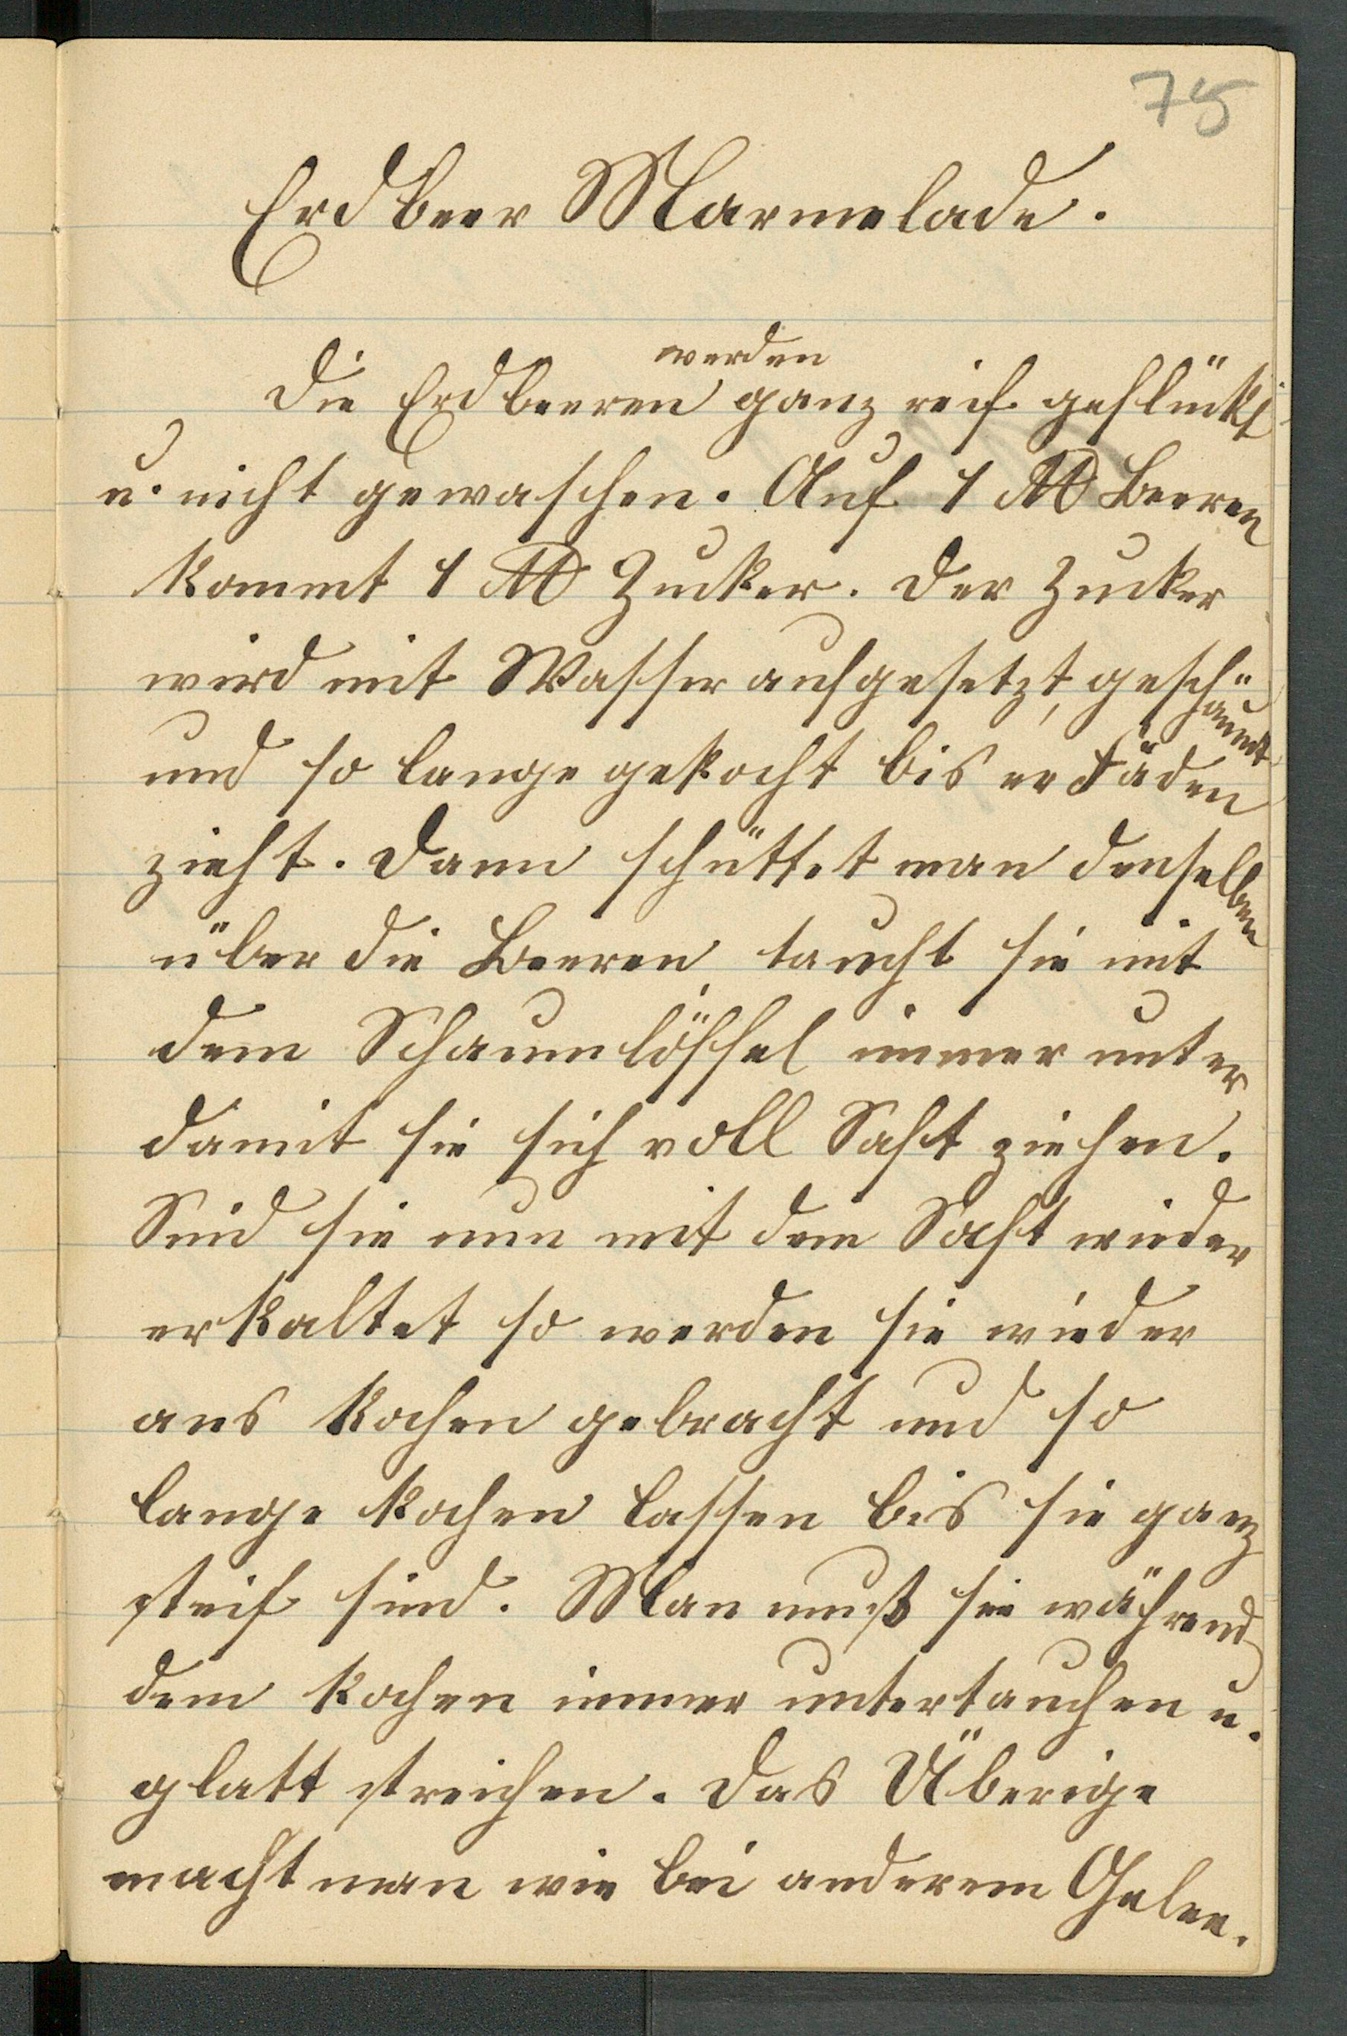 75
Erdbeer Marmelade.
werden
Die Erdbeeren ganz reif geflückt
u. nicht gewaschen. Auf 1 ℔ Beeren
kommt 1 ℔ Zucker. Der Zucker
wird mit Wasser aufgesetzt, geschäumt
und so lange gekocht bis er Fäden
zieht. Dann schüttet man denselben
über die Beeren taucht sie mit
dem Schaumlöffel immer unter
damit sie sich voll Saft ziehen.
Sind sie nun mit dem Saft wieder
erkaltet so werden sie wieder
ans Kochen gebracht und so
lange kochen lassen bis sie ganz
steif sind. Man muß sie während
dem Kochen immer untertauchen u.
glatt streichen. Das Überige
macht man wie bei anderem Gelee.